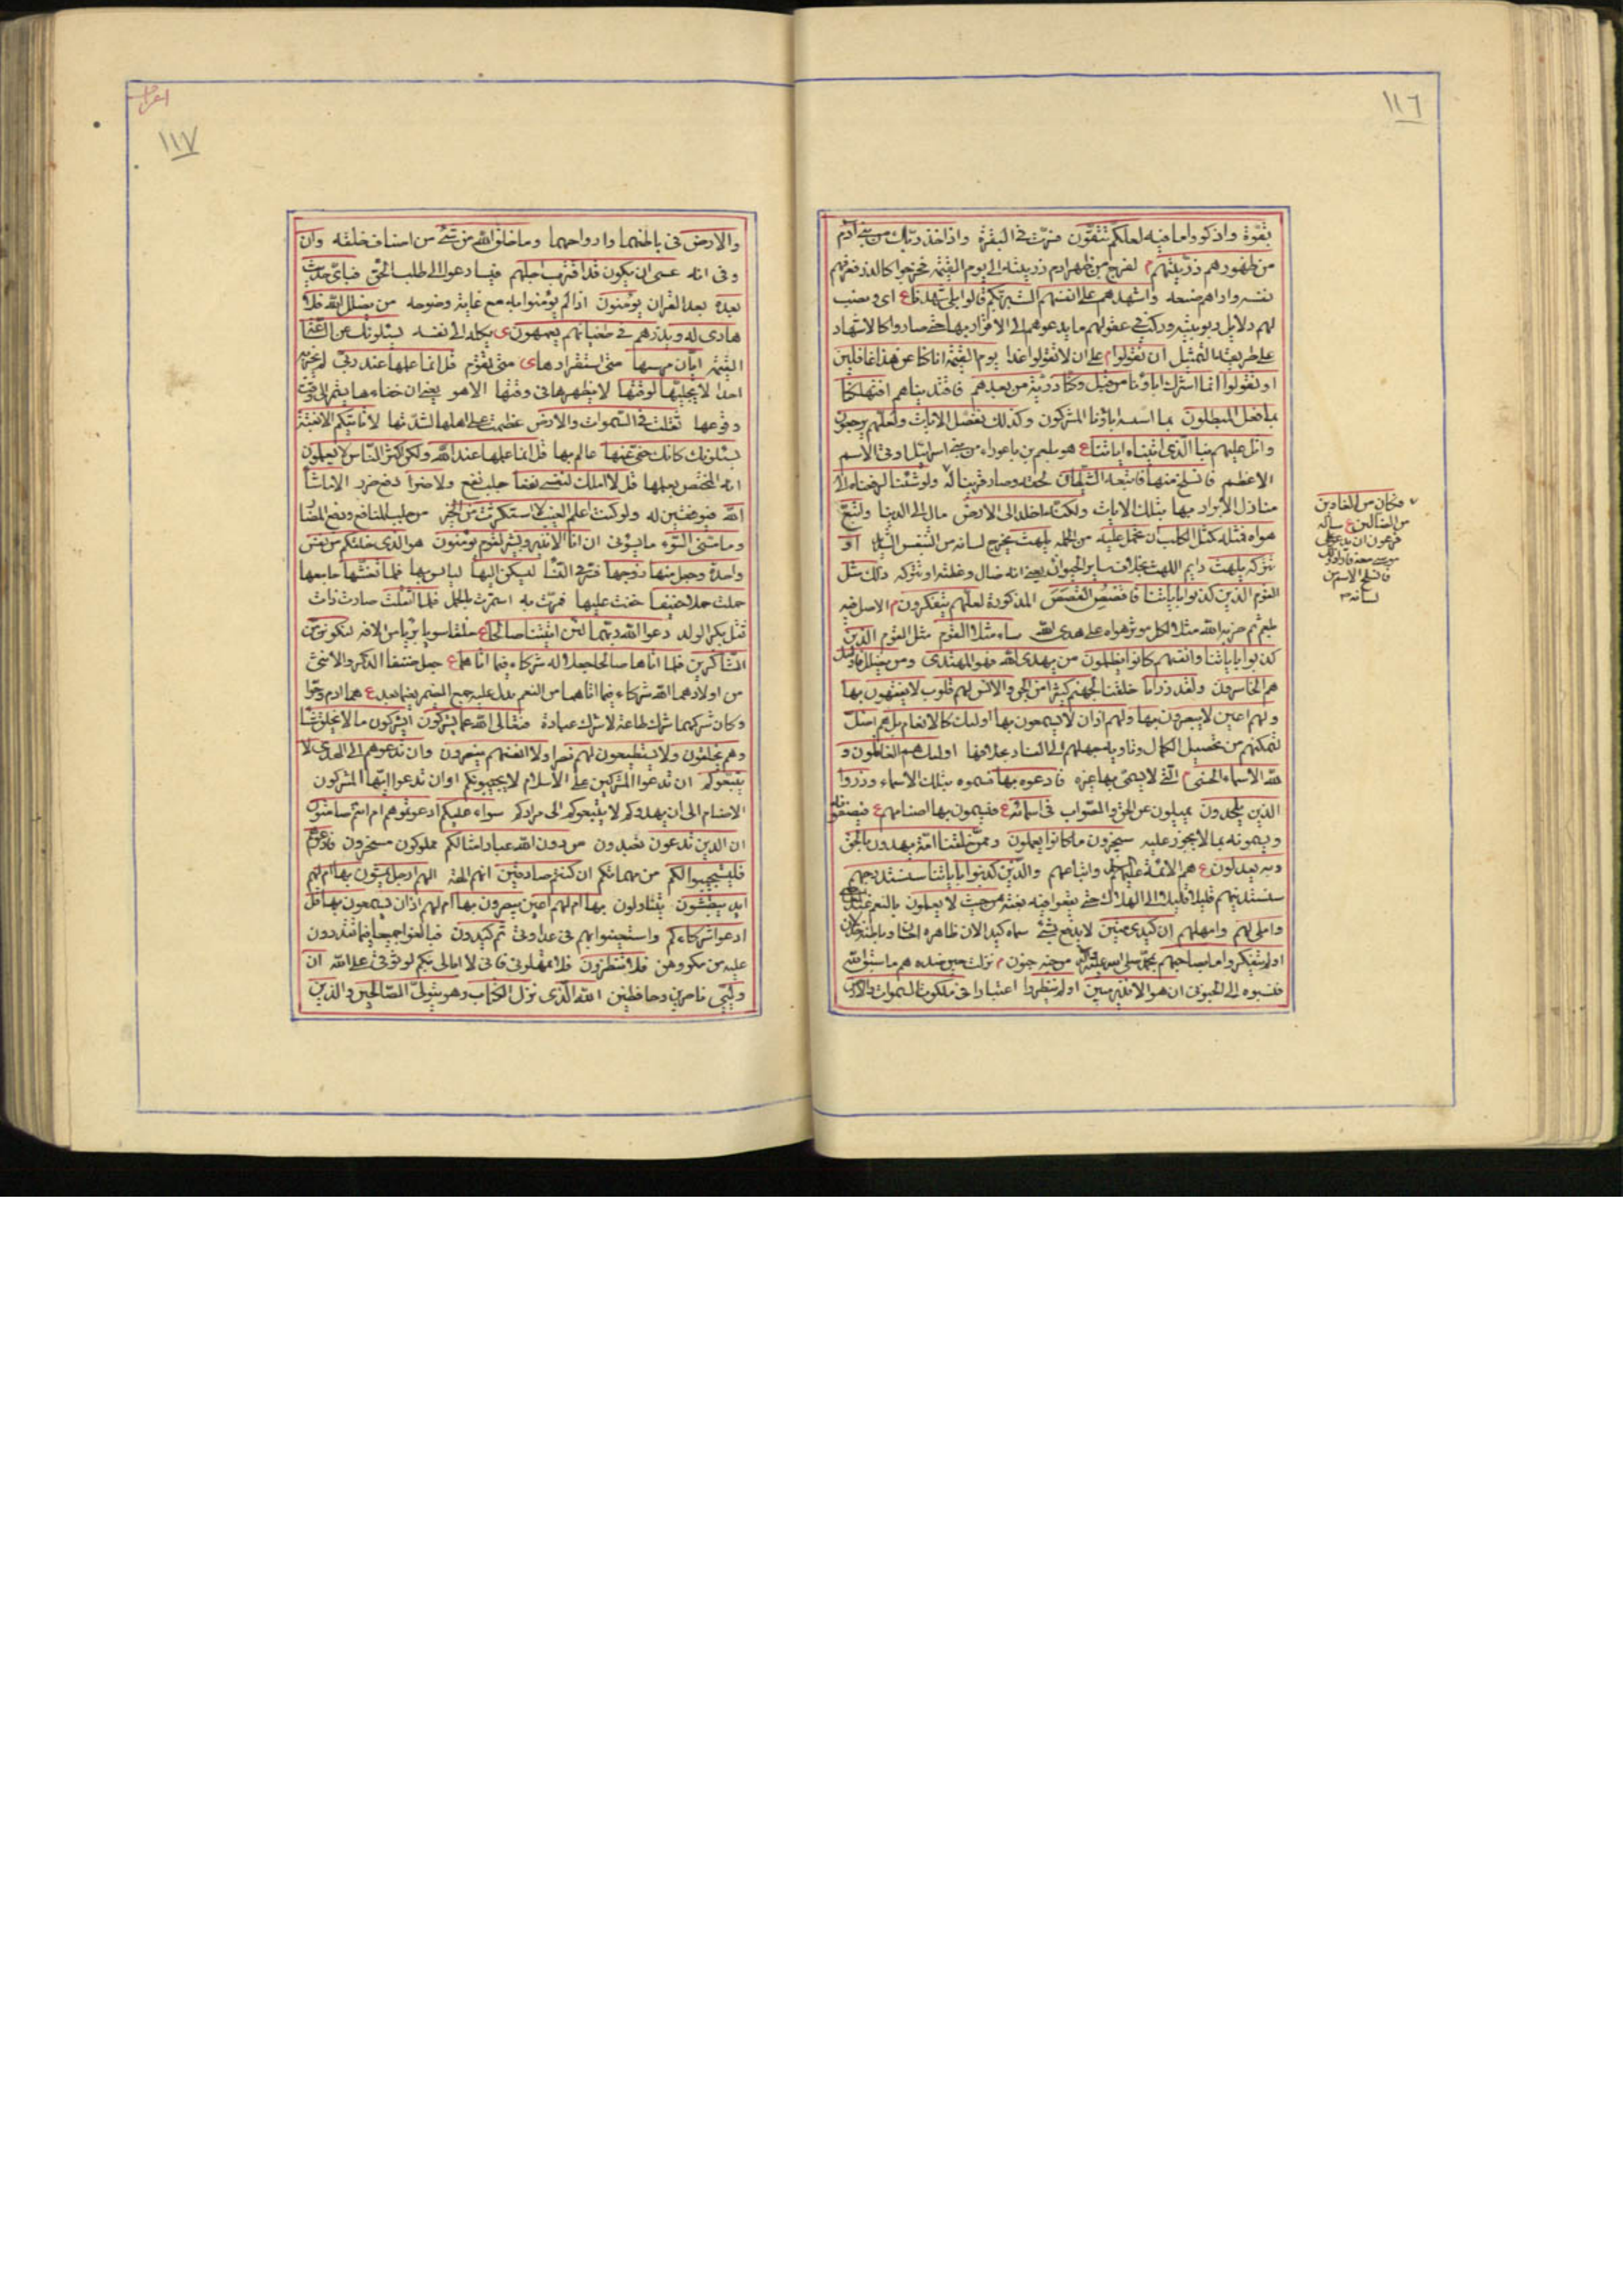 ١١٦
بقوة واذكروا ما فيه لعلكم تتقون فسّرت في البقرة واذ اخذ ربك من بني آدم
من ظهورهم ذريتهم م لفرج من ظهر ادم ذريته الى يوم القيمة فخرجوا كالذر فعرفهم
نفسه واراهم صنعه واشهدهم على انفسهم الست بربكم قالوا بلى شهدنا ع اى ونصب
لهم دلايل ربوبيته وركب في عقولهم ما يدعوهم الى الاقرار بها حتى صاروا كالاشهاد
على طريقة التمثيل ان تقولوا م على ان لا تقولوا غدا يوم القيمة انا كنا عن هذا غافلين
او تقولوا انما اشرك اباؤنا من قبل وكنا ذرية من بعدهم فاقتديناهم افتهلكنا
بما فعل المبطلون بما اسسه اباؤنا المشركون وكذلك نفصل الايات ولعلهم يرجعون
واتل عليهم نبأ الذى اتيناه اياتنا ع هو بلعم بن باعوراء من بنى اسرائيل اوتى الاسم
الاعظم فانسلخ منها فاتبعه الشيطان لحقه وصار قرينا له ولو شئنا لرفعناه الى
منازل الابرار بها بتلك الايات ولكنه اخلد الى الارض مال الى الدنيا واتبع
هواه فمثله كمثل الكلب ان تحمل عليه من الحملة يلهث يخرج لسانه من التنفس الشديد او
تتركه يلهث دايم اللهث بخلاف ساير الحيوان يعنى انه ضال وعظته او تتركه ذلك مثل
القوم الذين كذبوا باياتنا فاقصص القصص المذكورة لعلهم يتفكرون م الاصل فيه
بلعم ثم ضربه الله مثلا لكل موثر هواه على هدى الله ساء مثلا القوم مثل القوم الذين
كذبوا باياتنا وانفسهم كانوا يظلمون من يهدى الله فهو المهتدى ومن يضلل فاولئك
هم الخاسرون ولقد ذرانا خلقنا لجهنم كثيرا من الجن والانس لهم قلوب لا يفقهون بها
ولهم اعين لا يبصرون بها ولهم اذان لا يسمعون بها اولئك كالانعام بل هم اضل
لتمكنهم من تحصيل الكمال وتاديه جهلهم الى العناد بخلافها اولئك هم الغافلون و
لله الاسماء الحسنى م التى لا يسمى بها غيره فادعوه بها فسموه بتلك الاسماء وذروا
الذين يلحدون يميلون عن الحق والصواب فى اسمائه ع فيسمون بها اصنامهم ع فيصفونه
ويسمونه بما لا يجوز عليه سيجزون ما كانوا يعملون وممن خلقنا امة يهدون بالحق
وبه يعدلون ع هم الائمة عليهم واتباعهم والذين كذبوا باياتنا سنستدرجهم
سنستدنيهم قليلا قليلا الى الهلاك حتى يقعوا فيه بغتة من حيث لا يعلمون بالنعم
واملى لهم وامهلهم ان كيدى متين لا يدفع بشئ سماه كيدا لان ظاهره احسان وباطنه خذلان
اولم يتفكروا ما بصاحبهم بمحمد صلى الله عليه واله من جنة جنون م نزلت حين
فنسبوه الى الجنون ان هو الا نذير مبين اولم ينظروا اعتبارا فى ملكوت السموات والارض
فكان من الغاوين
من الضالين ع ساله
فرعون ان يدعو على
موسى
فانسلخ الاسم من
لسانه
اعراف
١١٧
والارض فى باطنهما وارواحهما وما خلق الله من شئ من اصناف خلقه وان
وفى انه عسى ان يكون قد اقترب اجلهم فيسارعوا الى طلب الحق فباى حديث
بعده بعد القران يؤمنون اذا لم يؤمنوا به مع غاية وضوحه من يضلل الله فلا
هادى له ويذرهم فى طغيانهم يعمهون ى يكله الى نفسه يسئلونك عن الساعة
القيمة ايان مرسها متى استقرارها ى متى تقوم قل انما علمها عند ربى لم يخبر به
احدا لا يجليها لوقتها لا يظهرها فى وقتها الا هو يعنى ان خفاءها يستمر الى وقت
وقوعها ثقلت فى السموات والارض عظمت على اهلها لشدتها لا تاتيكم الا بغتة
يسئلونك كانك حفى عنها عالم بها قل انما علمها عند الله ولكن اكثر الناس لا يعلمون
انه المختص بعلمها قل لا املك لنفسى نفعا جلب نفع ولا ضرا دفع ضرر الا ما شاء
الله فيوفقنى له ولو كنت اعلم الغيب لاستكثرت من الخير من جلب المنافع ودفع المضار
وما مسنى السوء ما يسوءنى ان انا الا نذير وبشير لقوم يؤمنون هو الذى خلقكم من نفس
واحدة وجعل منها زوجها فسّر في النساء ليسكن اليها ليانس بها فلما تغشها جامعها
حملت حملا خفيفا خفت عليها فمرت به استمرت بالحمل فلما اثقلت صارت ذات
ثقل بكبر الولد دعوا الله ربهما لئن اتيتنا صالحا ع خلقا سويا بريا من الافة لنكونن من
الشاكرين فلما اتاهما صالحا جعلا له شركاء فيما اتاهما ع جعل صنفا الذكر والانثى
من اولادهما الله شركاء فيما اتاهما من النعم يدل عليه جمع الضمير فيما بعد ع هما ادم وحوا
وكان شركهما شرك طاعة لا شرك عبادة فتعالى الله عما يشركون ايشركون ما لا يخلق شيئا
وهم يخلقون ولا يستطيعون لهم نصرا ولا انفسهم ينصرون وان تدعوهم الى الهدى لا
يتبعوكم ان تدعوا المشركين على الاسلام لا يجيبوكم او ان تدعوا ايها المشركون
الاصنام الى ان يهدوكم لا يتبعوكم الى مرادكم سواء عليكم ادعوتموهم ام انتم صامتون
ان الذين تدعون تعبدون من دون الله عباد امثالكم مملوكون مسخرون فادعوهم
فليستجيبوا لكم من مهماتكم ان كنتم صادقين انهم الهة الهم ارجل يمشون بها ام لهم
ايد يبطشون يتناولون بها ام لهم اعين يبصرون بها ام لهم اذان يسمعون بها قل
ادعوا شركاءكم واستعينوا بهم فى عداوتى ثم كيدون فبالغوا جميعا فيما تقدرون
عليه من مكروهى فلا تنظرون فلا تمهلونى فانى لا ابالى بكم لوثوقى على الله ان
وليى ناصرى وحافظى الله الذى نزل الكتاب وهو يتولى الصالحين والذين